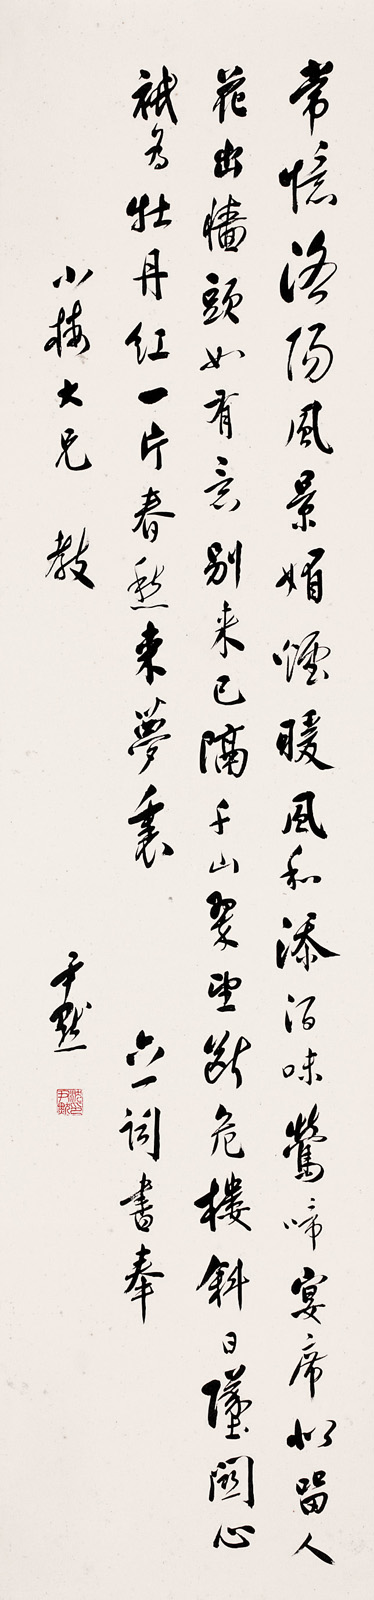 常憶洛陽風景媚煙暖風和添酒味鶯啼宴席似留人
花出牆頭如有意別來已隔千山翠望斷危樓斜日墜關心
衹為牡丹紅一片春愁來夢裏 六一詞書奉
小梅大兄 教 尹默